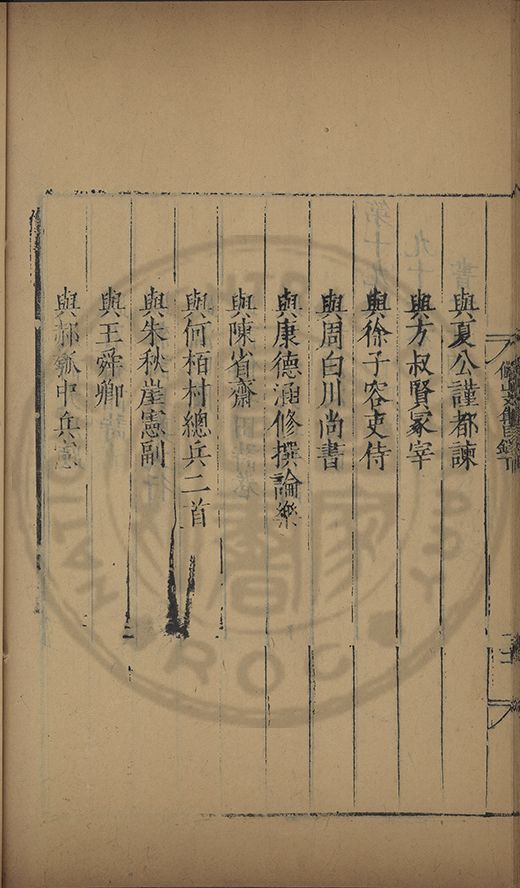 與夏公謹都諫
與方叔賢冢宰
與徐子容吏侍
與周白川尚書
與康德涵修撰論樂
與陳省齋
與何栢村總兵二首
與朱秋崖憲副
與王舜卿
與郝瓠中兵憲